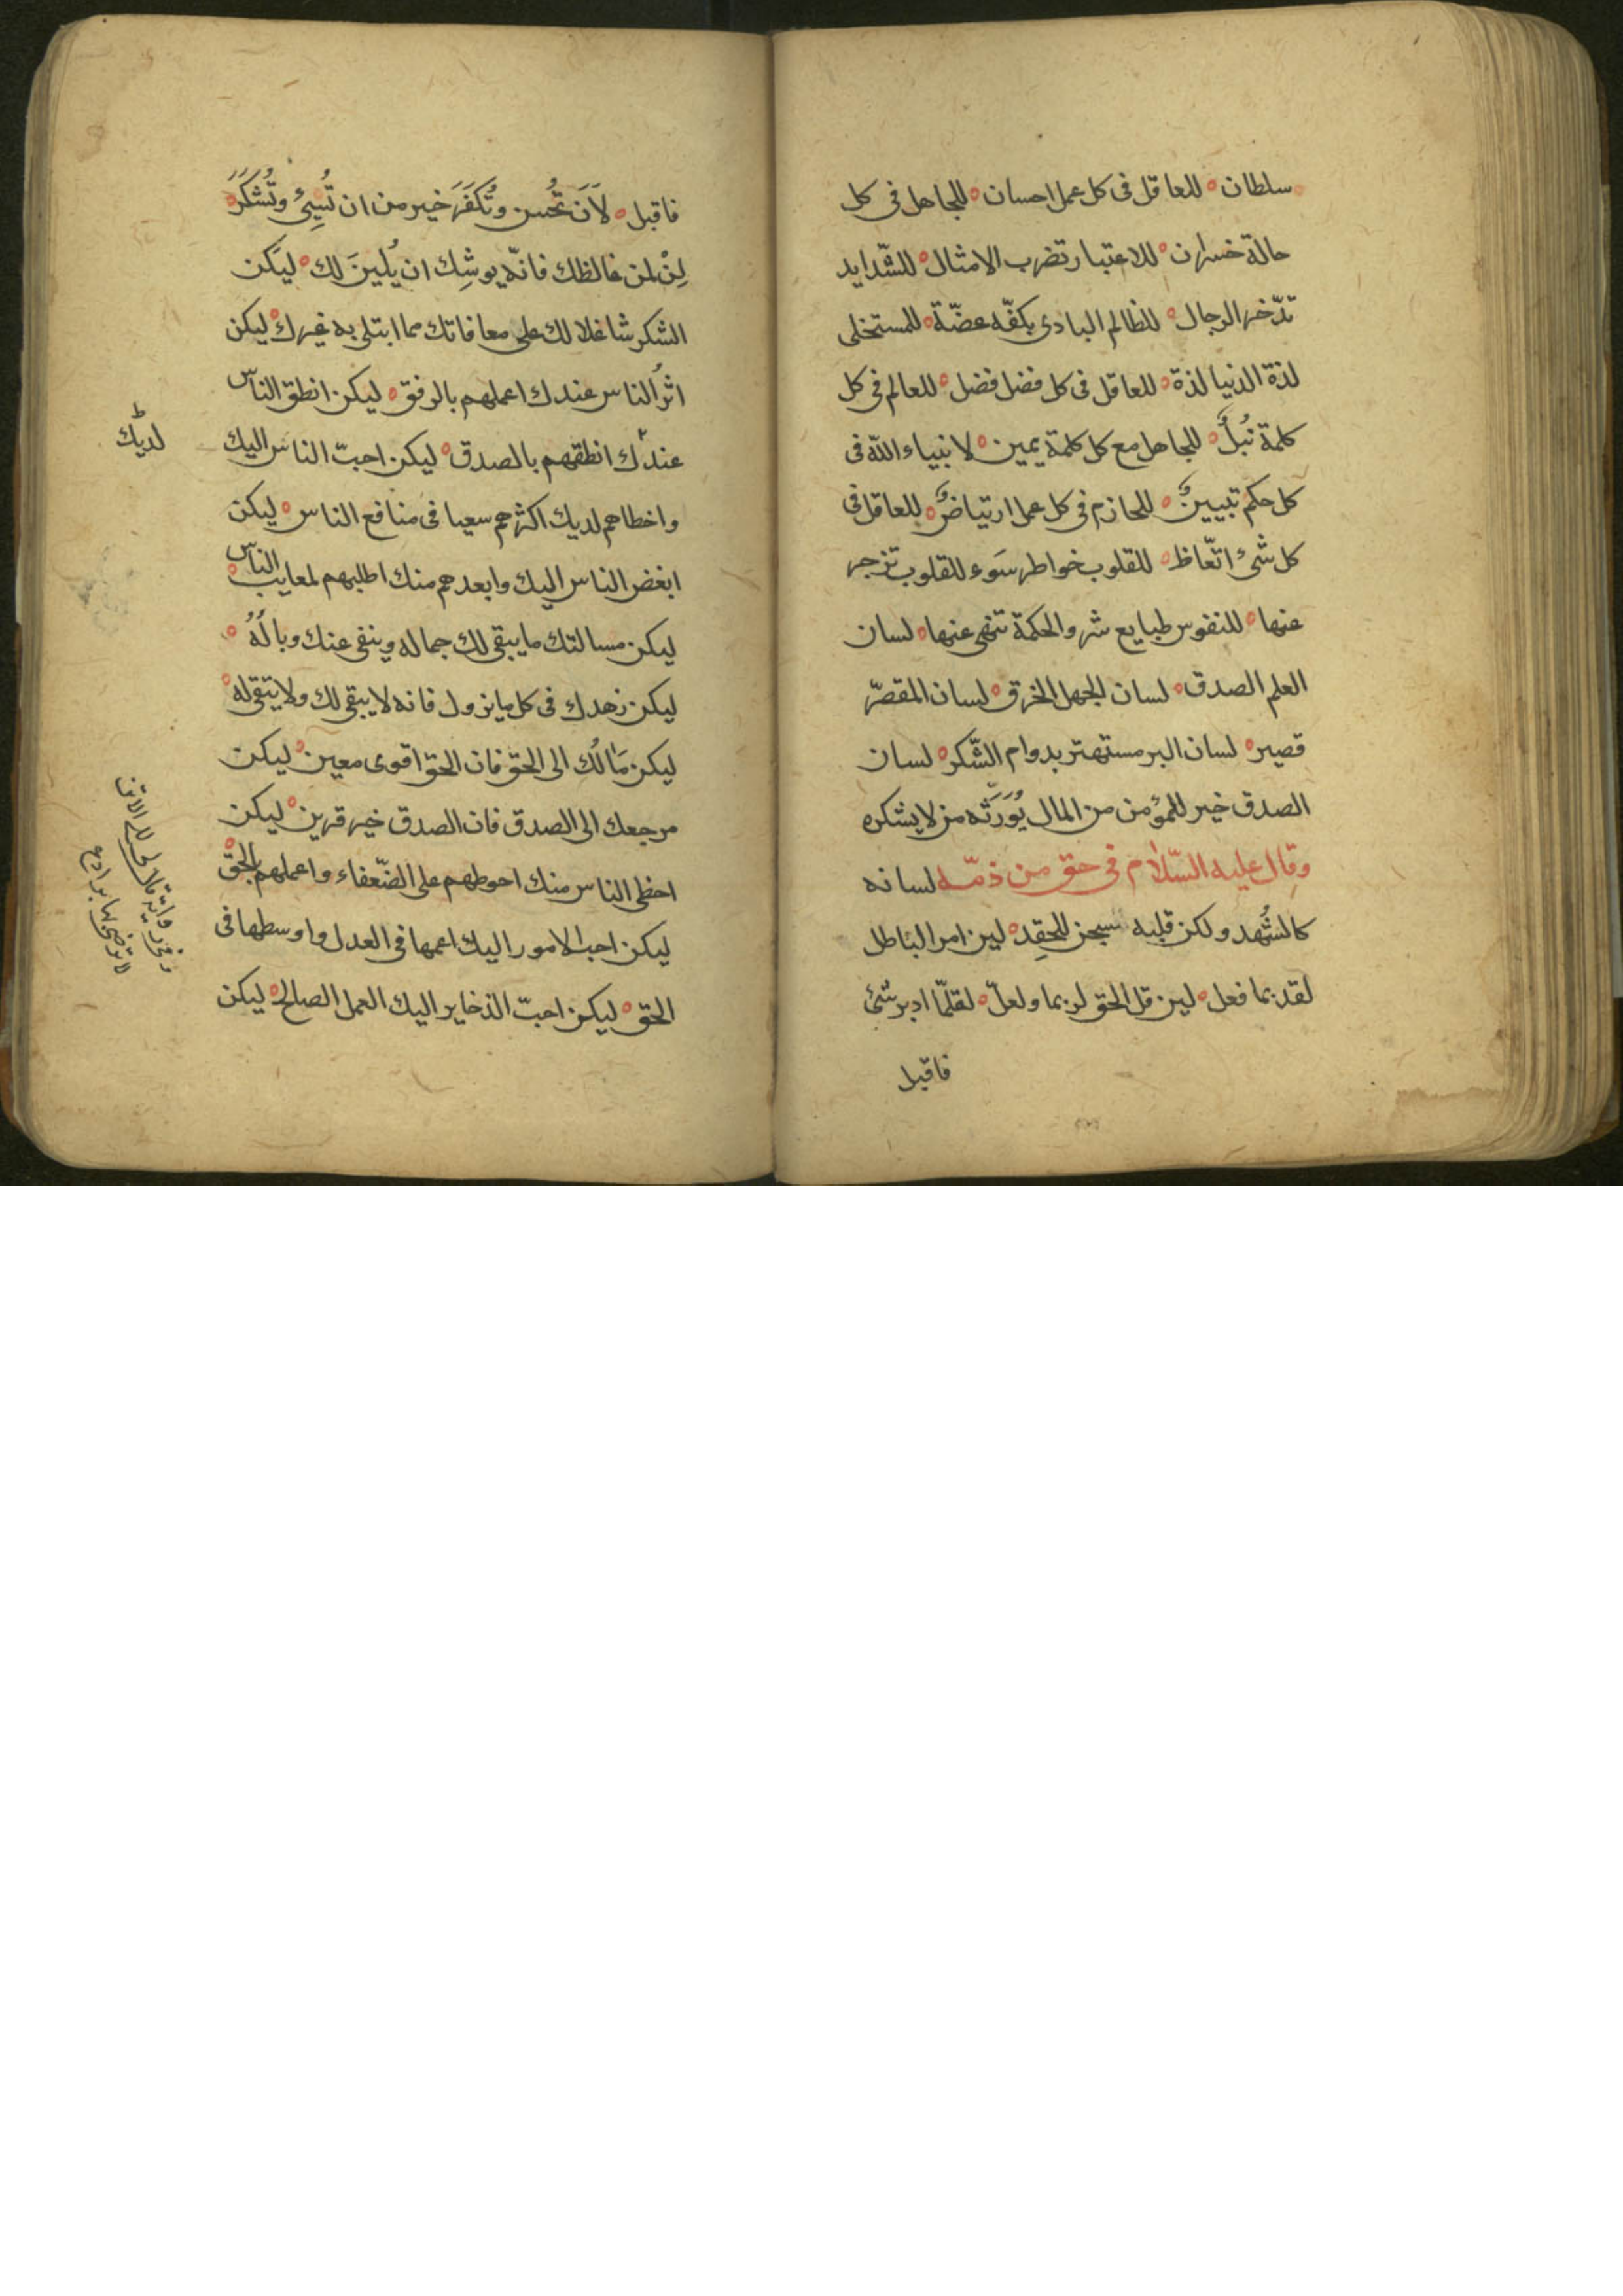 سلطان ه للعاقل فى كل عمل احسان ه للجاهل فى كل
حالة خسران ه للاعتبار تضرب الامثال ه للشّدايد
تدّخر الرجال ه للظالم البادى بكفّه عضّة ه للمستخلى
لذة الدنيا لذة ه للعاقل فى كل فضل فضل ه للعالم فى كل
كلمة نُبلٌ ه للجاهل مع كل كلمة يمين ه لانبياء الله فى
كل حكم تبيينٌ ه للحازم فى كل عمل ارتياضٌ ه للعاقل فى
كل شئ اتّعاظ ه للقلوب خواطر سَوء للقلوب تزجر
عنها ه للنفوس طبايع شر والحكمة تنهى عنها ه لسان
العلم الصدق ه لسان الجهل الخرق ه لسان المقصّر
قصير ه لسان البر مستهتر بدوام الشّكر ه لسان
الصدق خير للمؤمن من المال يُوَرَثه من لا يشكره
وقال عليه السّلام فى حق من ذمّه لسانه
كالشُهد ولكن قلبه سجن للحِقد ه لين امر الباطل
لقد بما فعل ه لين قل الحق لربما ولعلّ ه لقلّما ادبر شئ
فاقبل
فاقبل ه لَاَنَ تُحسن وتُكَفَرَ خير من ان تُسِئ وتُشَكَرَ ه
لِنْ لمن غالظك فانّه يوشِك ان يُلينَ لك ه ليكن
الشكر شاغلا لك على معافاتك مما ابتلى به غيرك ه ليكن
اثرُ الناس عندك اعملهم بالرفق ه ليكن انطق الناس
عندك انطقهم بالصدق ه ليكن احبّ الناس اليك
لديك
واخطاهم لديك اكثرهم سعيا فى منافع الناس ه ليكن
ابغض الناس اليك وابعدهم منك اطلبهم لمعايب الناس ه
ليكن مسالتك ما يبقى لك جماله وينفى عنك وبالُهُ ه
ليكن زهدك فى كل ما يزول فانه لا يبقى لك ولا يتقى له ه
ليكن مَالُك الى الحقّ فان الحق اقوى معين ه ليكن
مرجعك الى الصدق فان الصدق خير قرين ه ليكن
احظى الناس منك احوطهم على الضّعفاء واعملهم بالحقّ ه
ليكن احب الامور اليك اعمها فى العدل واوسطها فى
الحق ه ليكن احبّ الذخاير اليك العمل الصالح ه ليكن